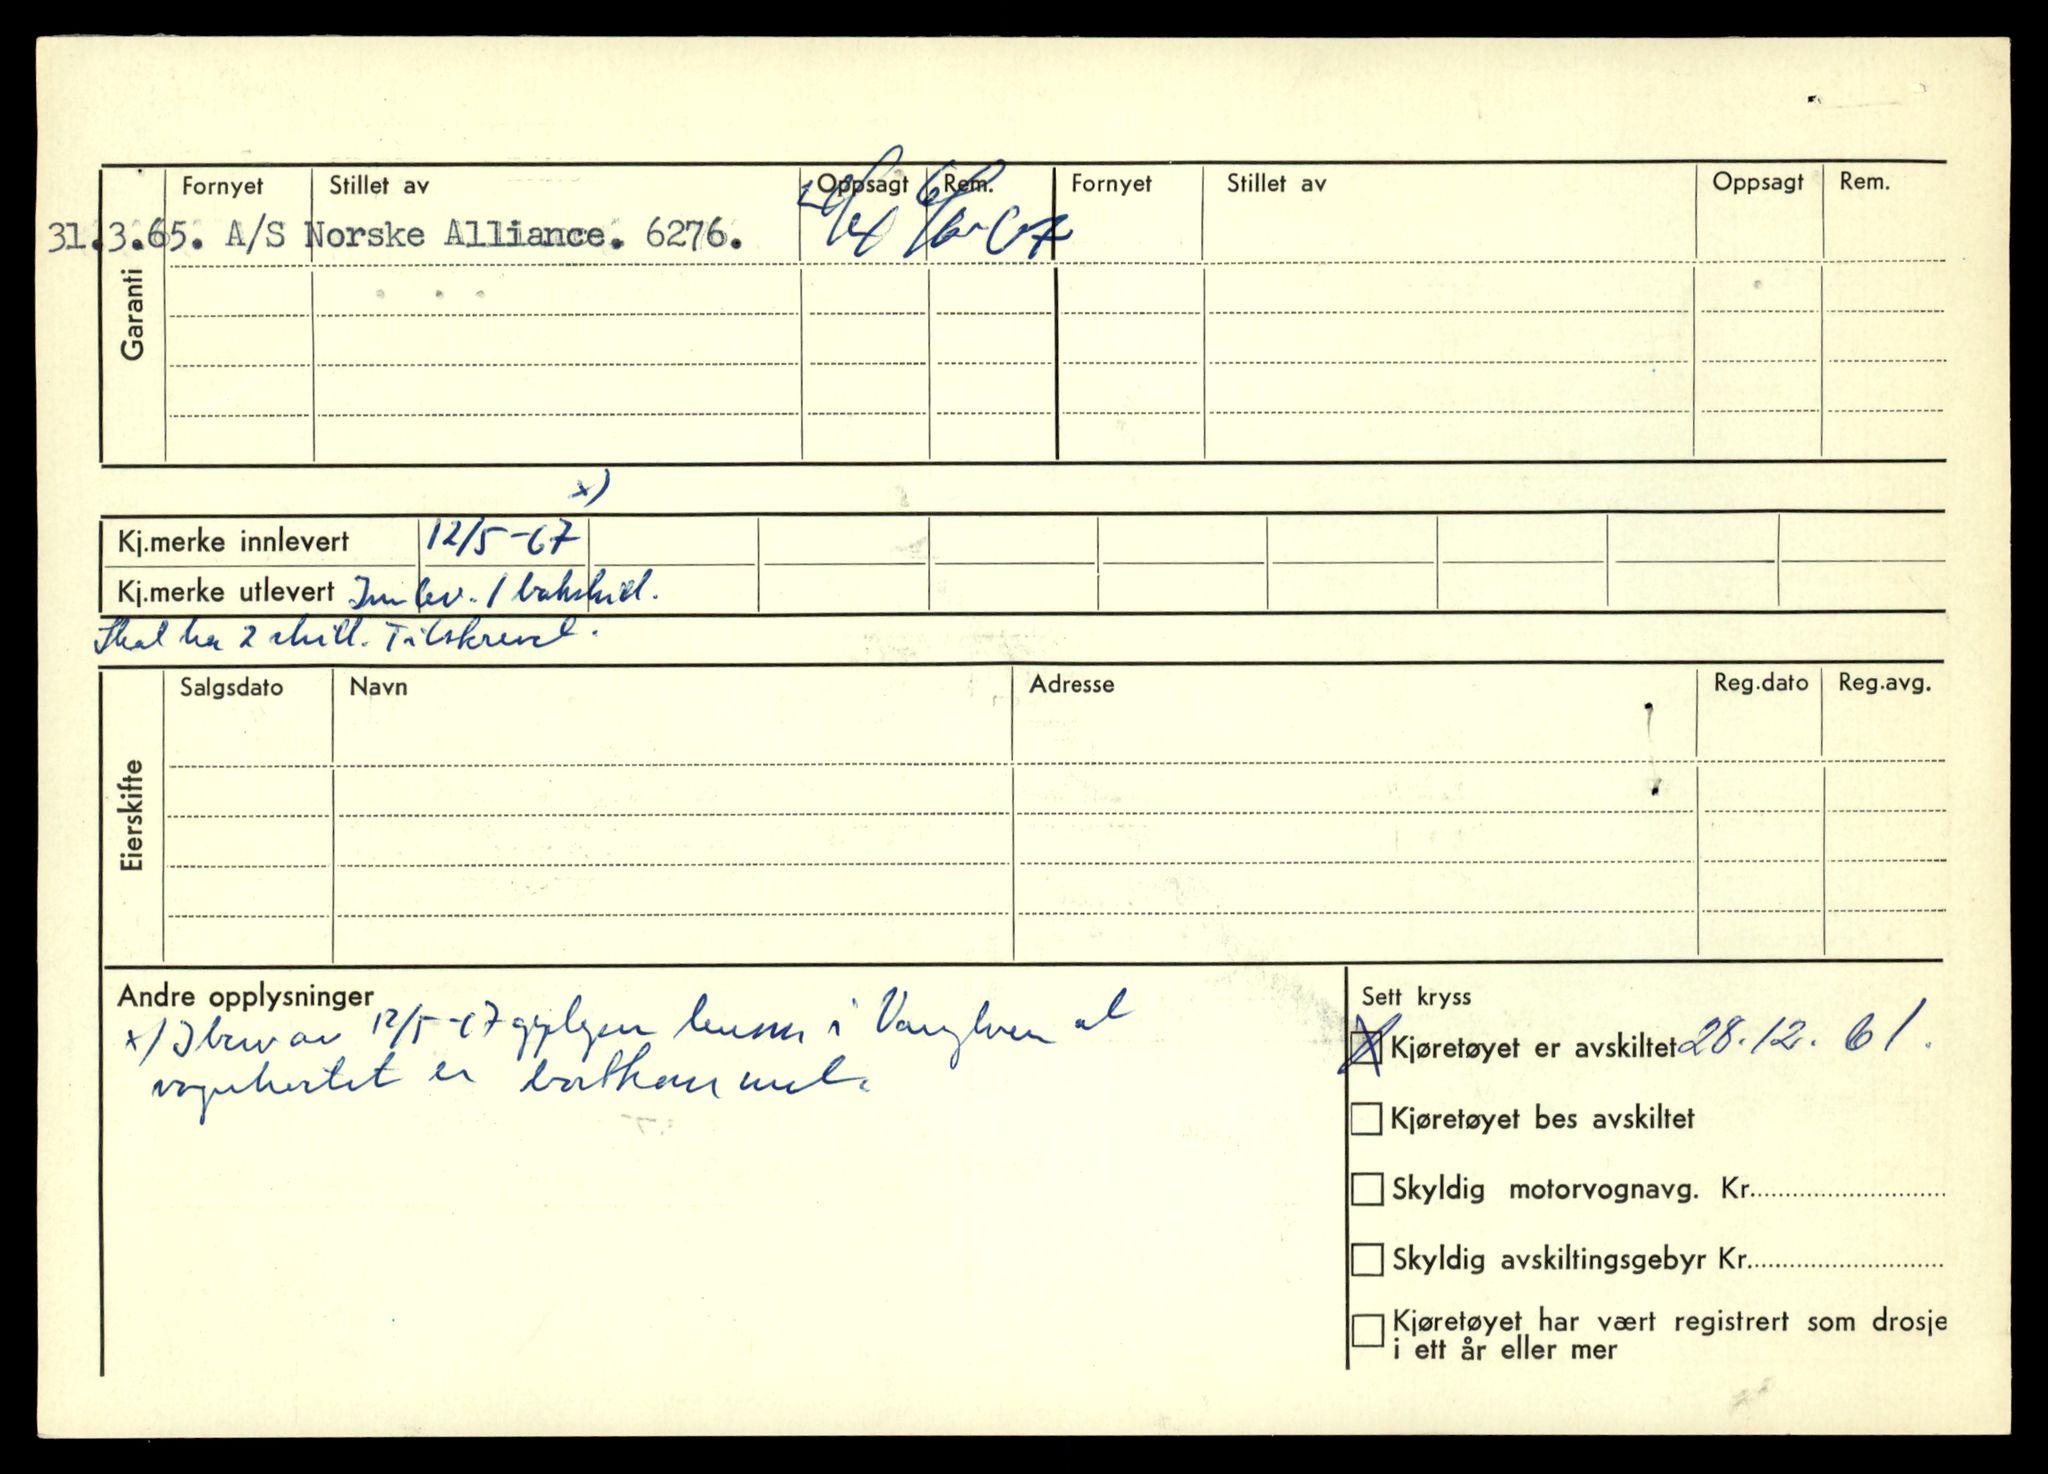 Fornyet Stillet av Oppsagt Rem. Fornyet Stillet av Oppsagt Rem.
31.3.65. A/S Norske Alliance. 6276.
Garanti
x)
Kj.merke innlevert 12/5-67
Kj.merke utlevert Innlev. 1 bakskilt.
Skal ha 2 skilt. Tilskrevet.
Salgsdato Navn Adresse Reg.dato Reg.avg.
Eierskifte
Andre opplysninger
x) I brev av 12/5-67 opplyser lensm. i Vang at
vognkortet er bortkommet.
Sett kryss
X Kjøretøyet er avskiltet 28.12.61.
Kjøretøyet bes avskiltet
Skyldig motorvognavg. Kr.
Skyldig avskiltingsgebyr Kr.
Kjøretøyet har vært registrert som drosje
i ett år eller mer